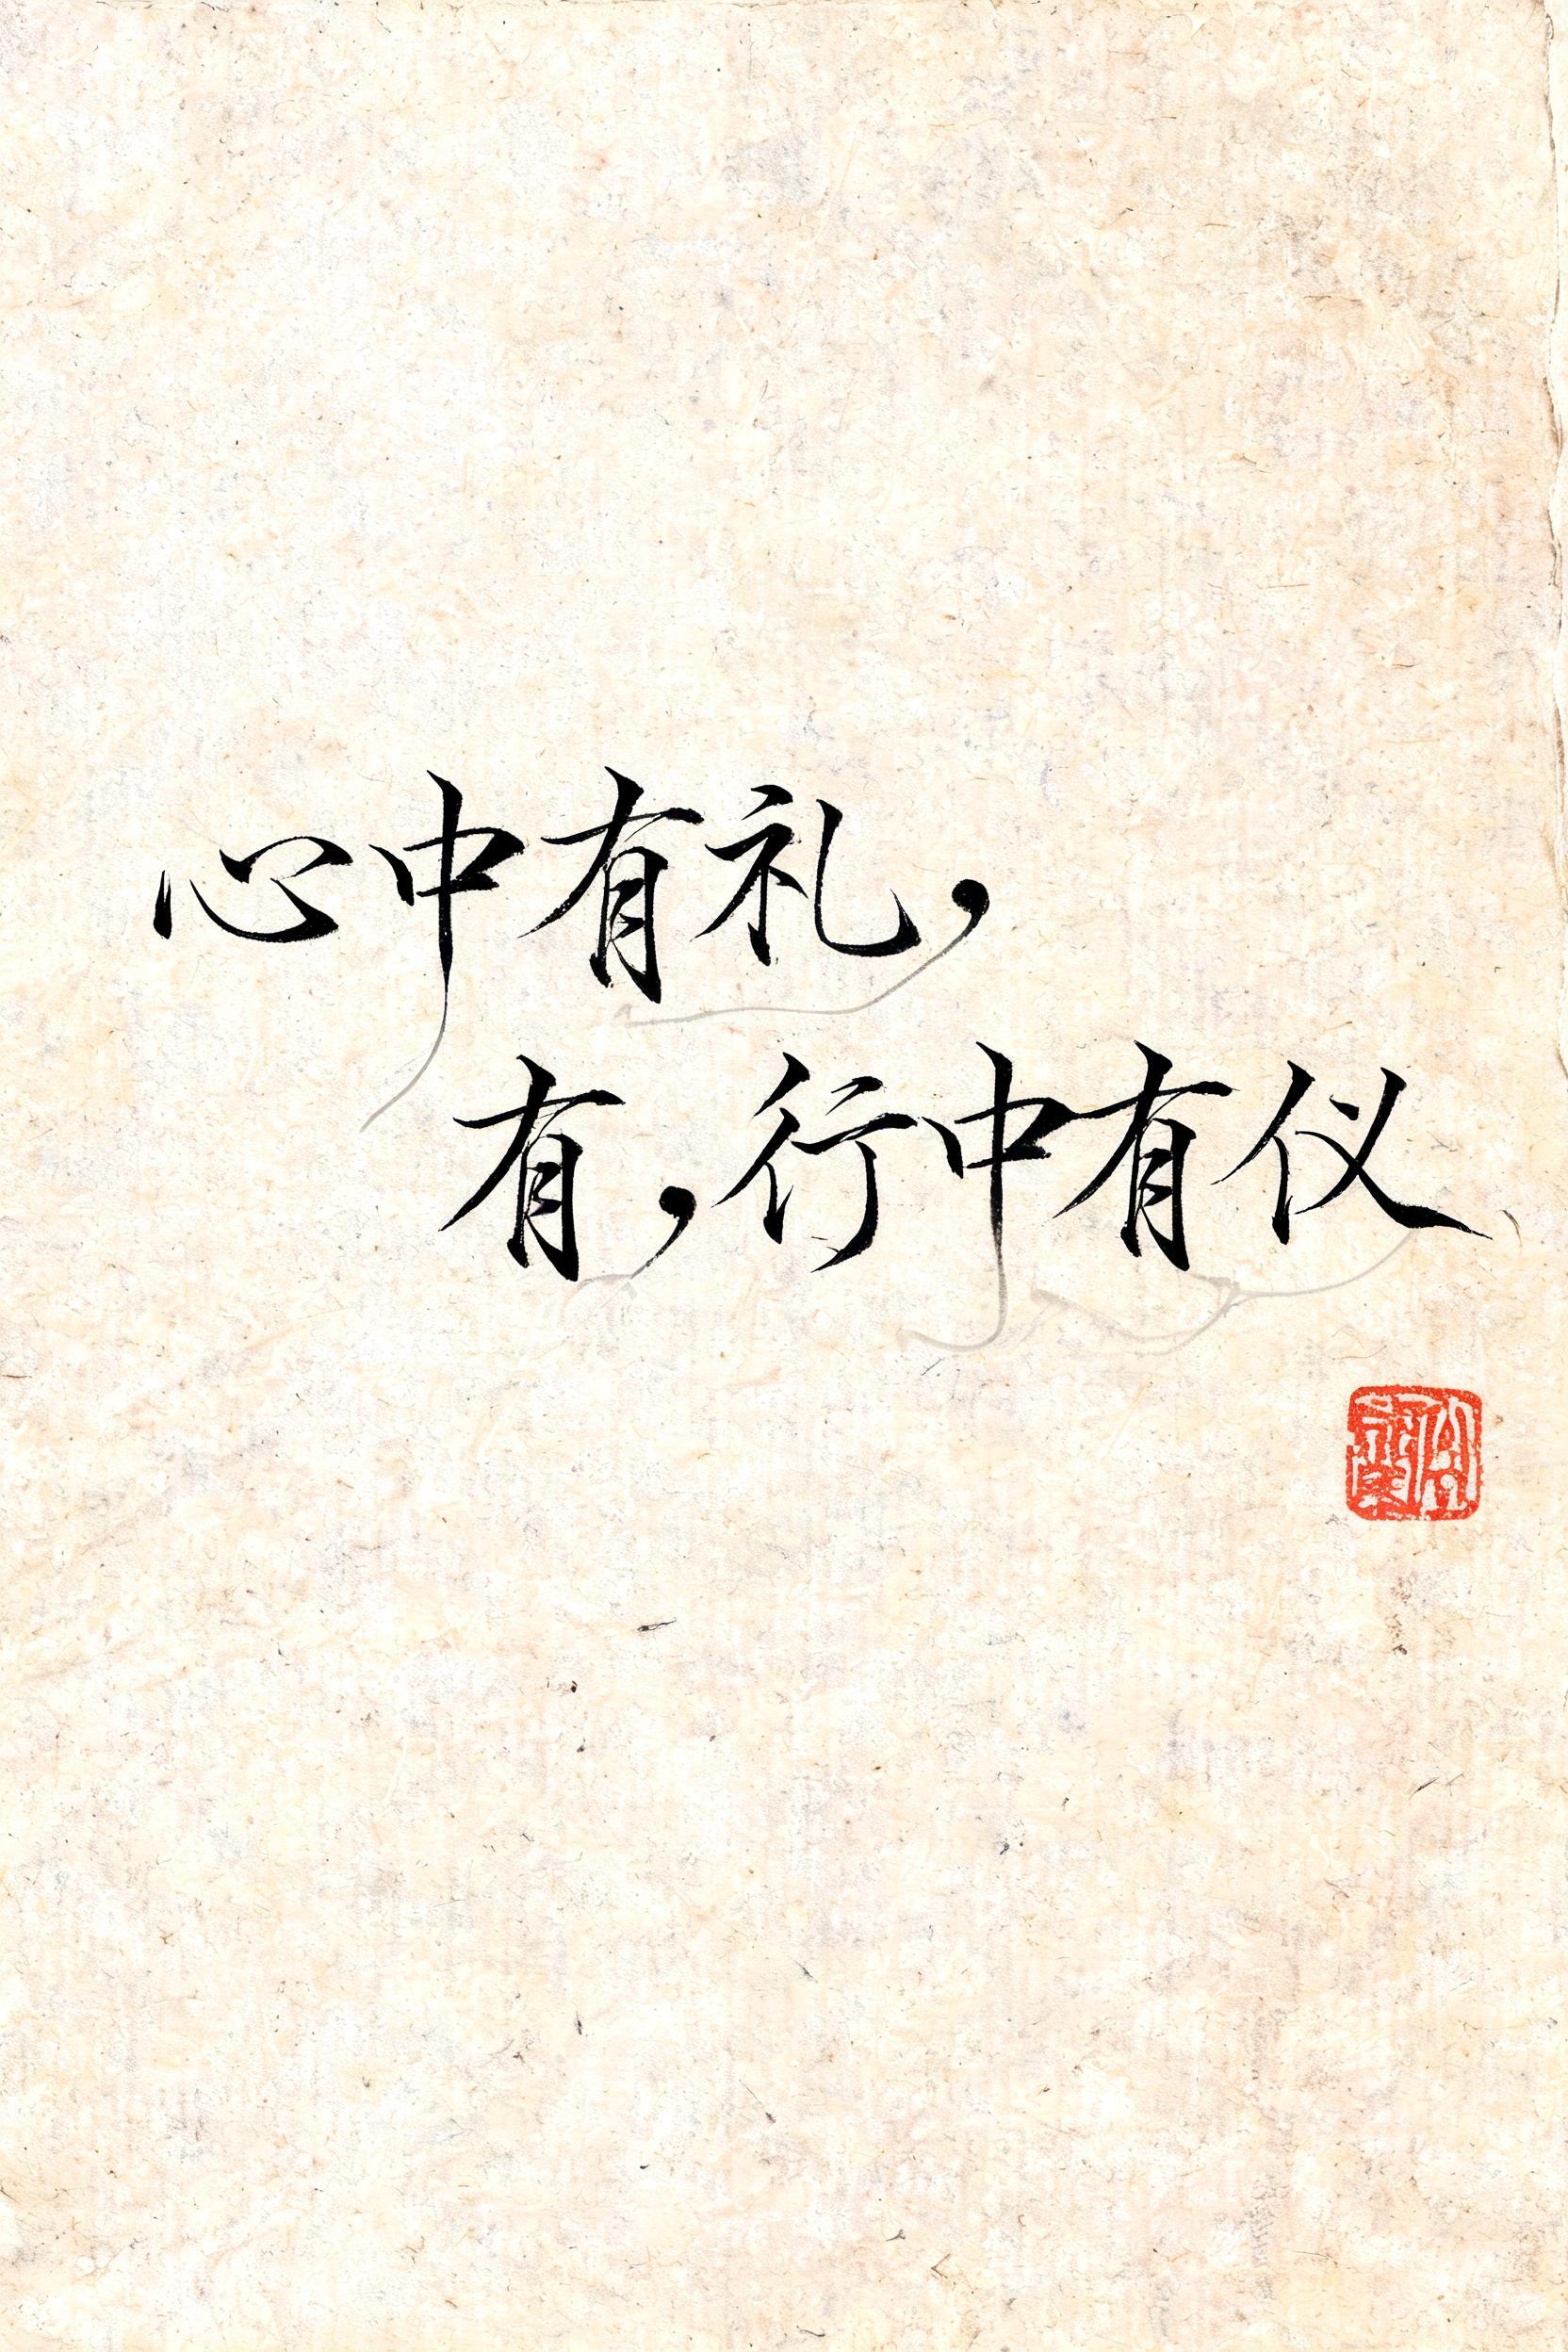 心中有礼，
有，行中有仪